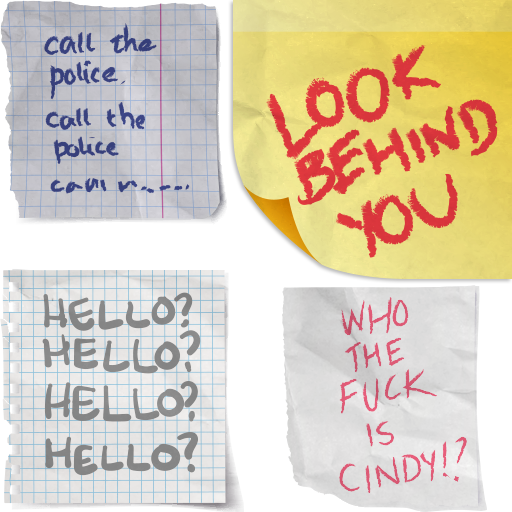 call the
police.
call the
police
LOOK
BEHIND
YOU
HELLO?
HELLO?
HELLO?
HELLO?
WHO
THE
FUCK
IS
CINDY!?